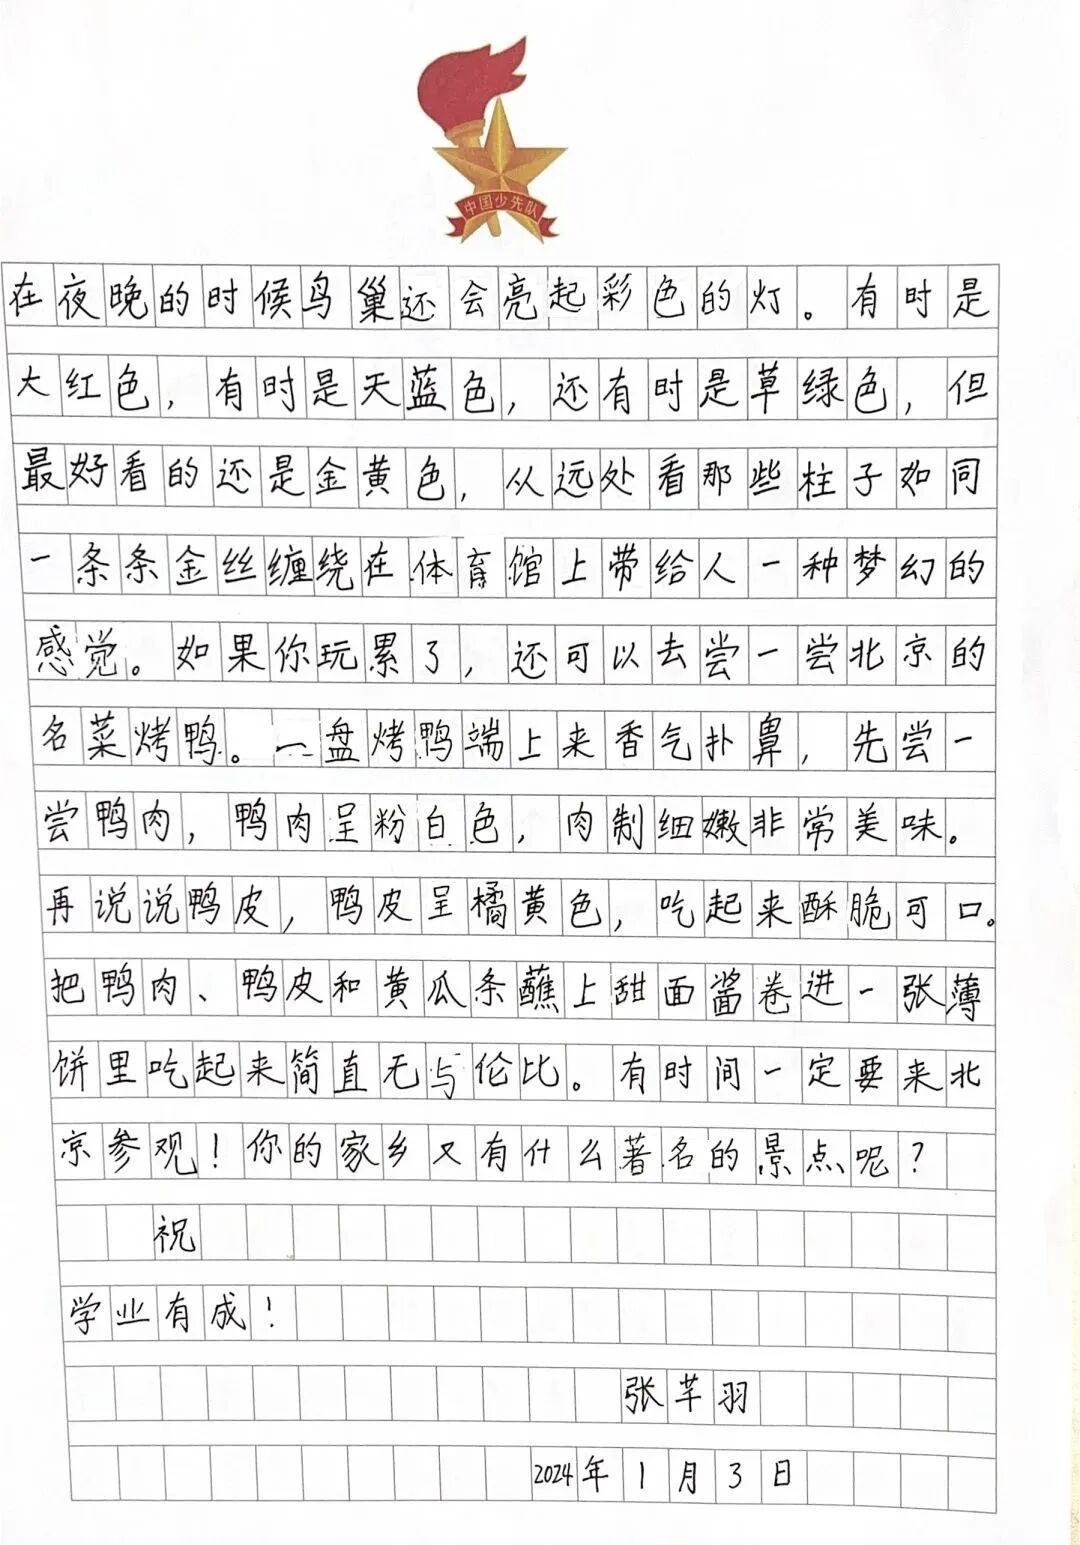 中国少先队
在夜晚的时候鸟巢还会亮起彩色的灯。有时是
大红色，有时是天蓝色，还有时是草绿色，但
最好看的还是金黄色，从远处看那些柱子如同
一条条金丝缠绕在体育馆上带给人一种梦幻的
感觉。如果你玩累了，还可以去尝一尝北京的
名菜烤鸭。一盘烤鸭端上来香气扑鼻，先尝一
尝鸭肉，鸭肉呈粉白色，肉制细嫩非常美味。
再说说鸭皮，鸭皮呈橘黄色，吃起来酥脆可口。
把鸭肉、鸭皮和黄瓜条蘸上甜面酱卷进一张薄
饼里吃起来简直无与伦比。有时间一定要来北
京参观！你的家乡又有什么著名的景点呢？
祝
学业有成！
张芊羽
2024年1月3日